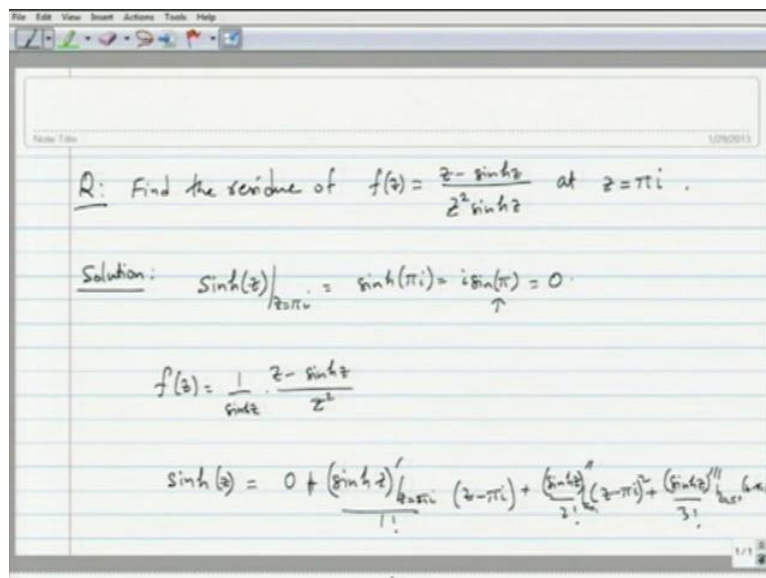 File Edit View Insert Actions Tools Help
Note Title
1/29/2013
Q: Find the residue of f(z) = (z - sinhz)/(z² sinhz) at z = πi .
Solution: Sinh(z)|_{z=πi} = sinh(πi) = i sin(π) = 0.
↑
f(z) = 1/sinhz · (z - sinhz)/z²
sinh(z) = 0 + (sinhz)'|_{z=πi}/1! (z-πi) + (sinhz)''/2! (z-πi)² + (sinhz)'''/3!
1/1